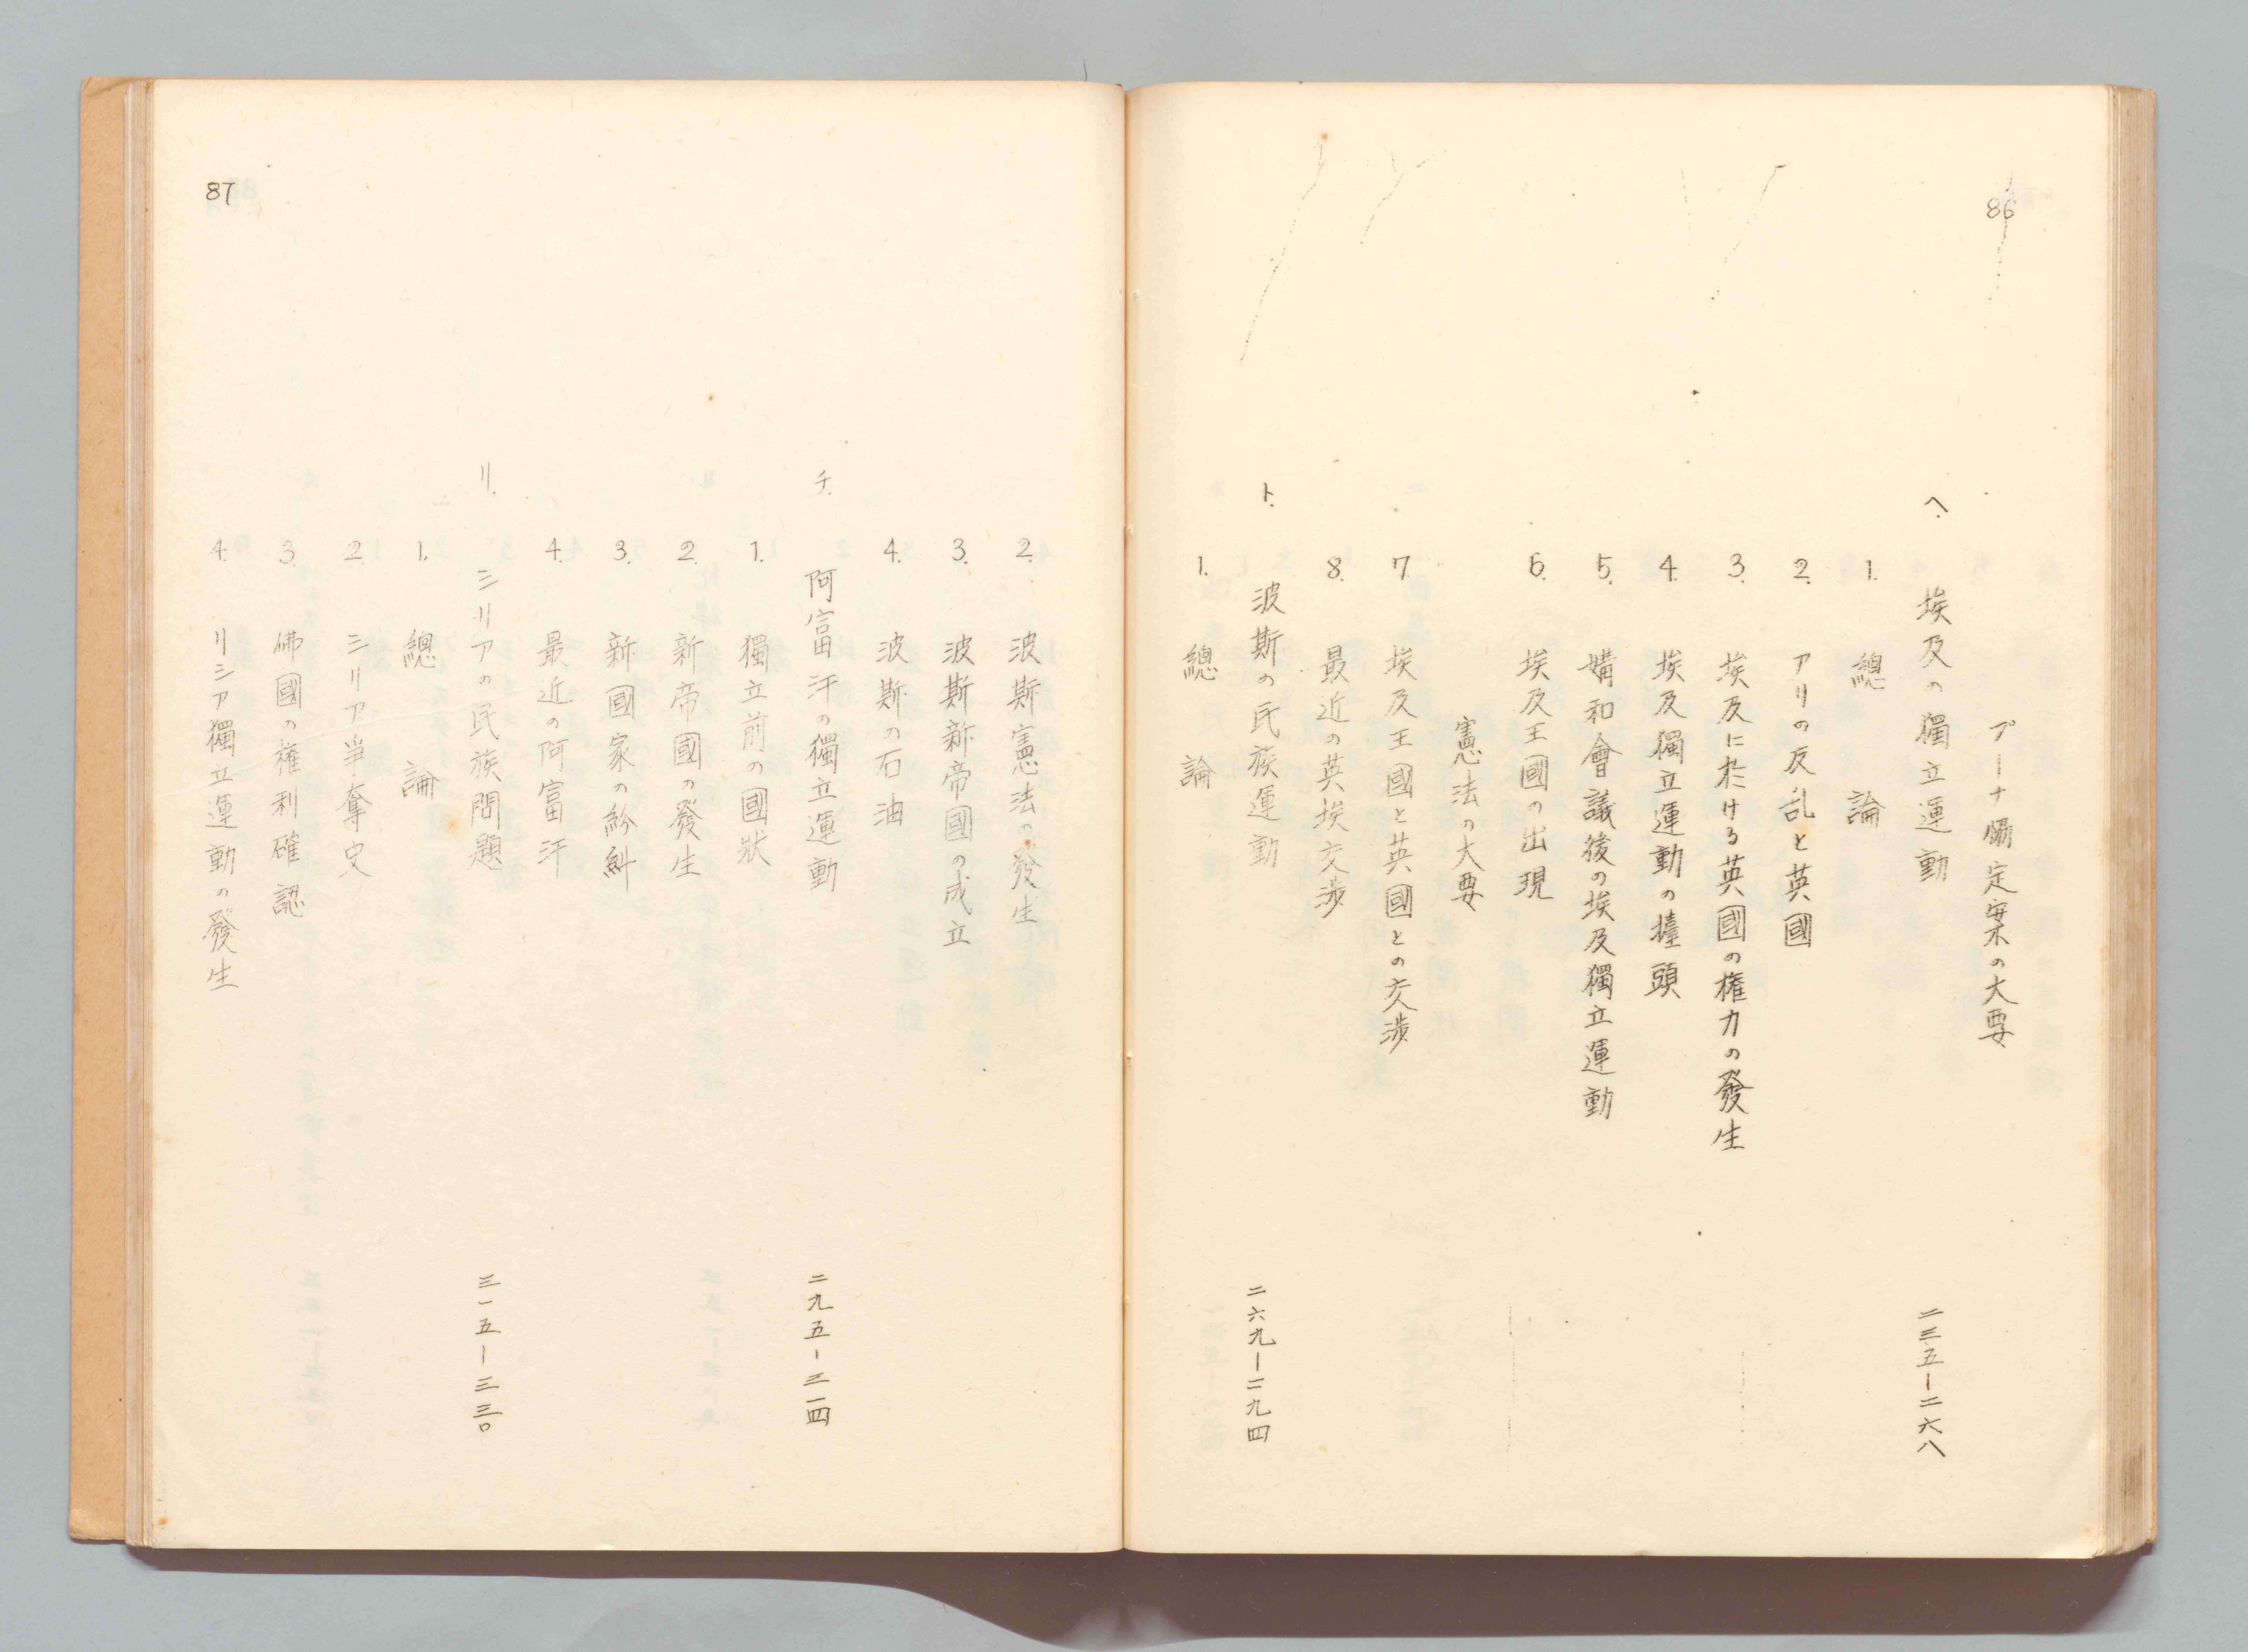 86
プーナ協定案の大要
ヘ. 埃及の獨立運動 二三五ー二六八
1. 總論
2. アリの反乱と英國
3. 埃及に於ける英國の権力の發生
4. 埃及獨立運動の擡頭
5. 媾和會議後の埃及獨立運動
6. 埃及王國の出現
憲法の大要
7. 埃及王國と英國との交渉
8. 最近の英埃交渉
ト. 波斯の民族運動 二六九ー二九四
1. 總論
2. 波斯憲法の發生
3. 波斯新帝國の成立
4. 波斯の石油
チ. 阿富汗の獨立運動 二九五ー三一四
1. 獨立前の國狀
2. 新帝國の發生
3. 新國家の紛糾
4. 最近の阿富汗
リ. シリアの民族問題 三一五ー三三〇
1. 總論
2. シリア争奪史
3. 佛國の権利確認
4. リシア獨立運動の發生
87